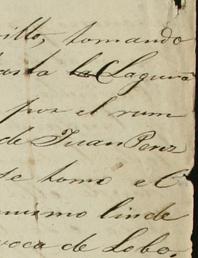 rillo, tomando
hasta la Laguna
por el rum
de Juan Perez
se tomo el C
mismo linde
voca de Lobo,